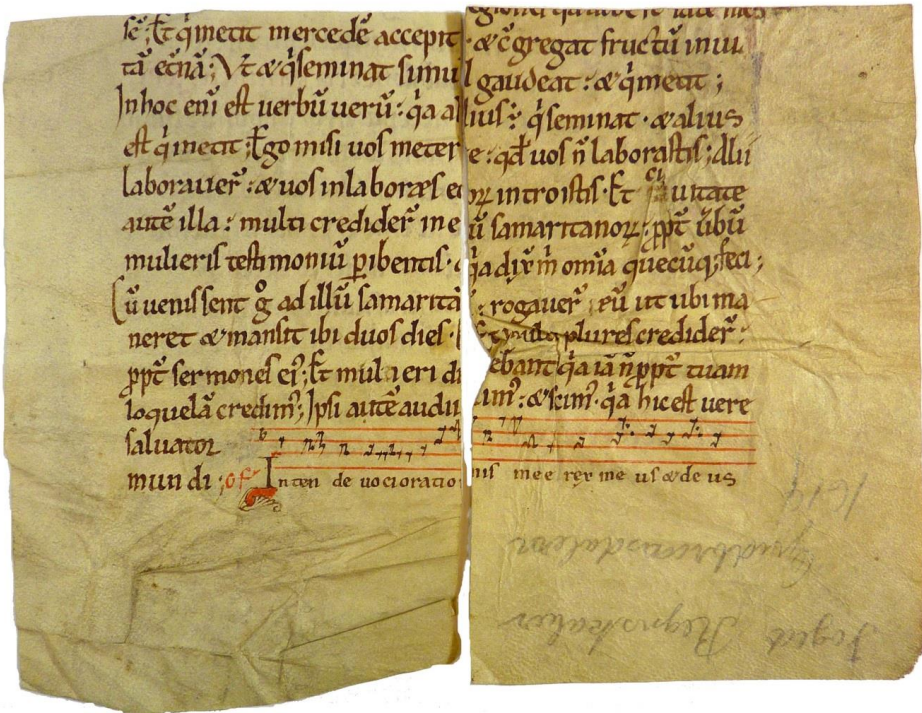 sc̄; Et q̇ metit mercedē accepit · & c̄gregat fructū in ui
tā et̄nā; Vt & q̇ seminat simul gaudeat : & q̇ metit ;
In hoc enī est uerbū uerū : q̇a alius : q̇ seminat · & alius
est q̇ metit; Ego misi uos metere : qđ uos n̄ laborastis; Alii
laborauer̄ : & uos in labores eoꝝ introistis · Et ciuitate
autē illa : multi credider̄ in eū samaritanoꝝ : ꝓpt̄ ūbū
mulieris testimoniū ꝑhibentis · q̇a dix̄ m̄ om̄ia quecūq; feci ;
Cū uenissent g̊ ad illū samaritā : rogauer̄ eū ut ibi ma
neret & mansit ibi duos dies · multo plures credider̄ :
ꝓpt̄ sermones ei᷒; Et mulieri di ebant q̇a iā n̄ ꝓpt̄ tuam
loquelā credim᷒; Ipsi autē audiu im᷒ : & scim᷒ · q̇a hic est uere
saluator
mundi ; of Inten de uoci oratio nis mee rex me us & de us
1614
Gudbrandsdalen
Fogid Regnskaber